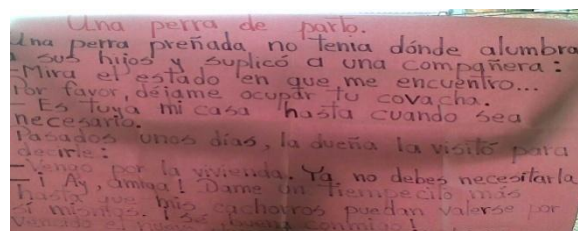 Una perra de parto.
Una perra preñada, no tenía dónde alumbra
a sus hijos y suplicó a una compañera:
-Mira el estado en que me encuentro...
Por favor, déjame ocupar tu covacha.
- Es tuya mi casa hasta cuando sea
necesario.
Pasados unos días, la dueña la visitó para
decirle:
-Vengo por la vivienda. Ya no debes necesitarla
-¡Ay, amiga! Dame un tiempecito más
hasta que mis cachorros puedan valerse por
sí mismos. ¡Sé buena conmigo!
Vencido el nuevo